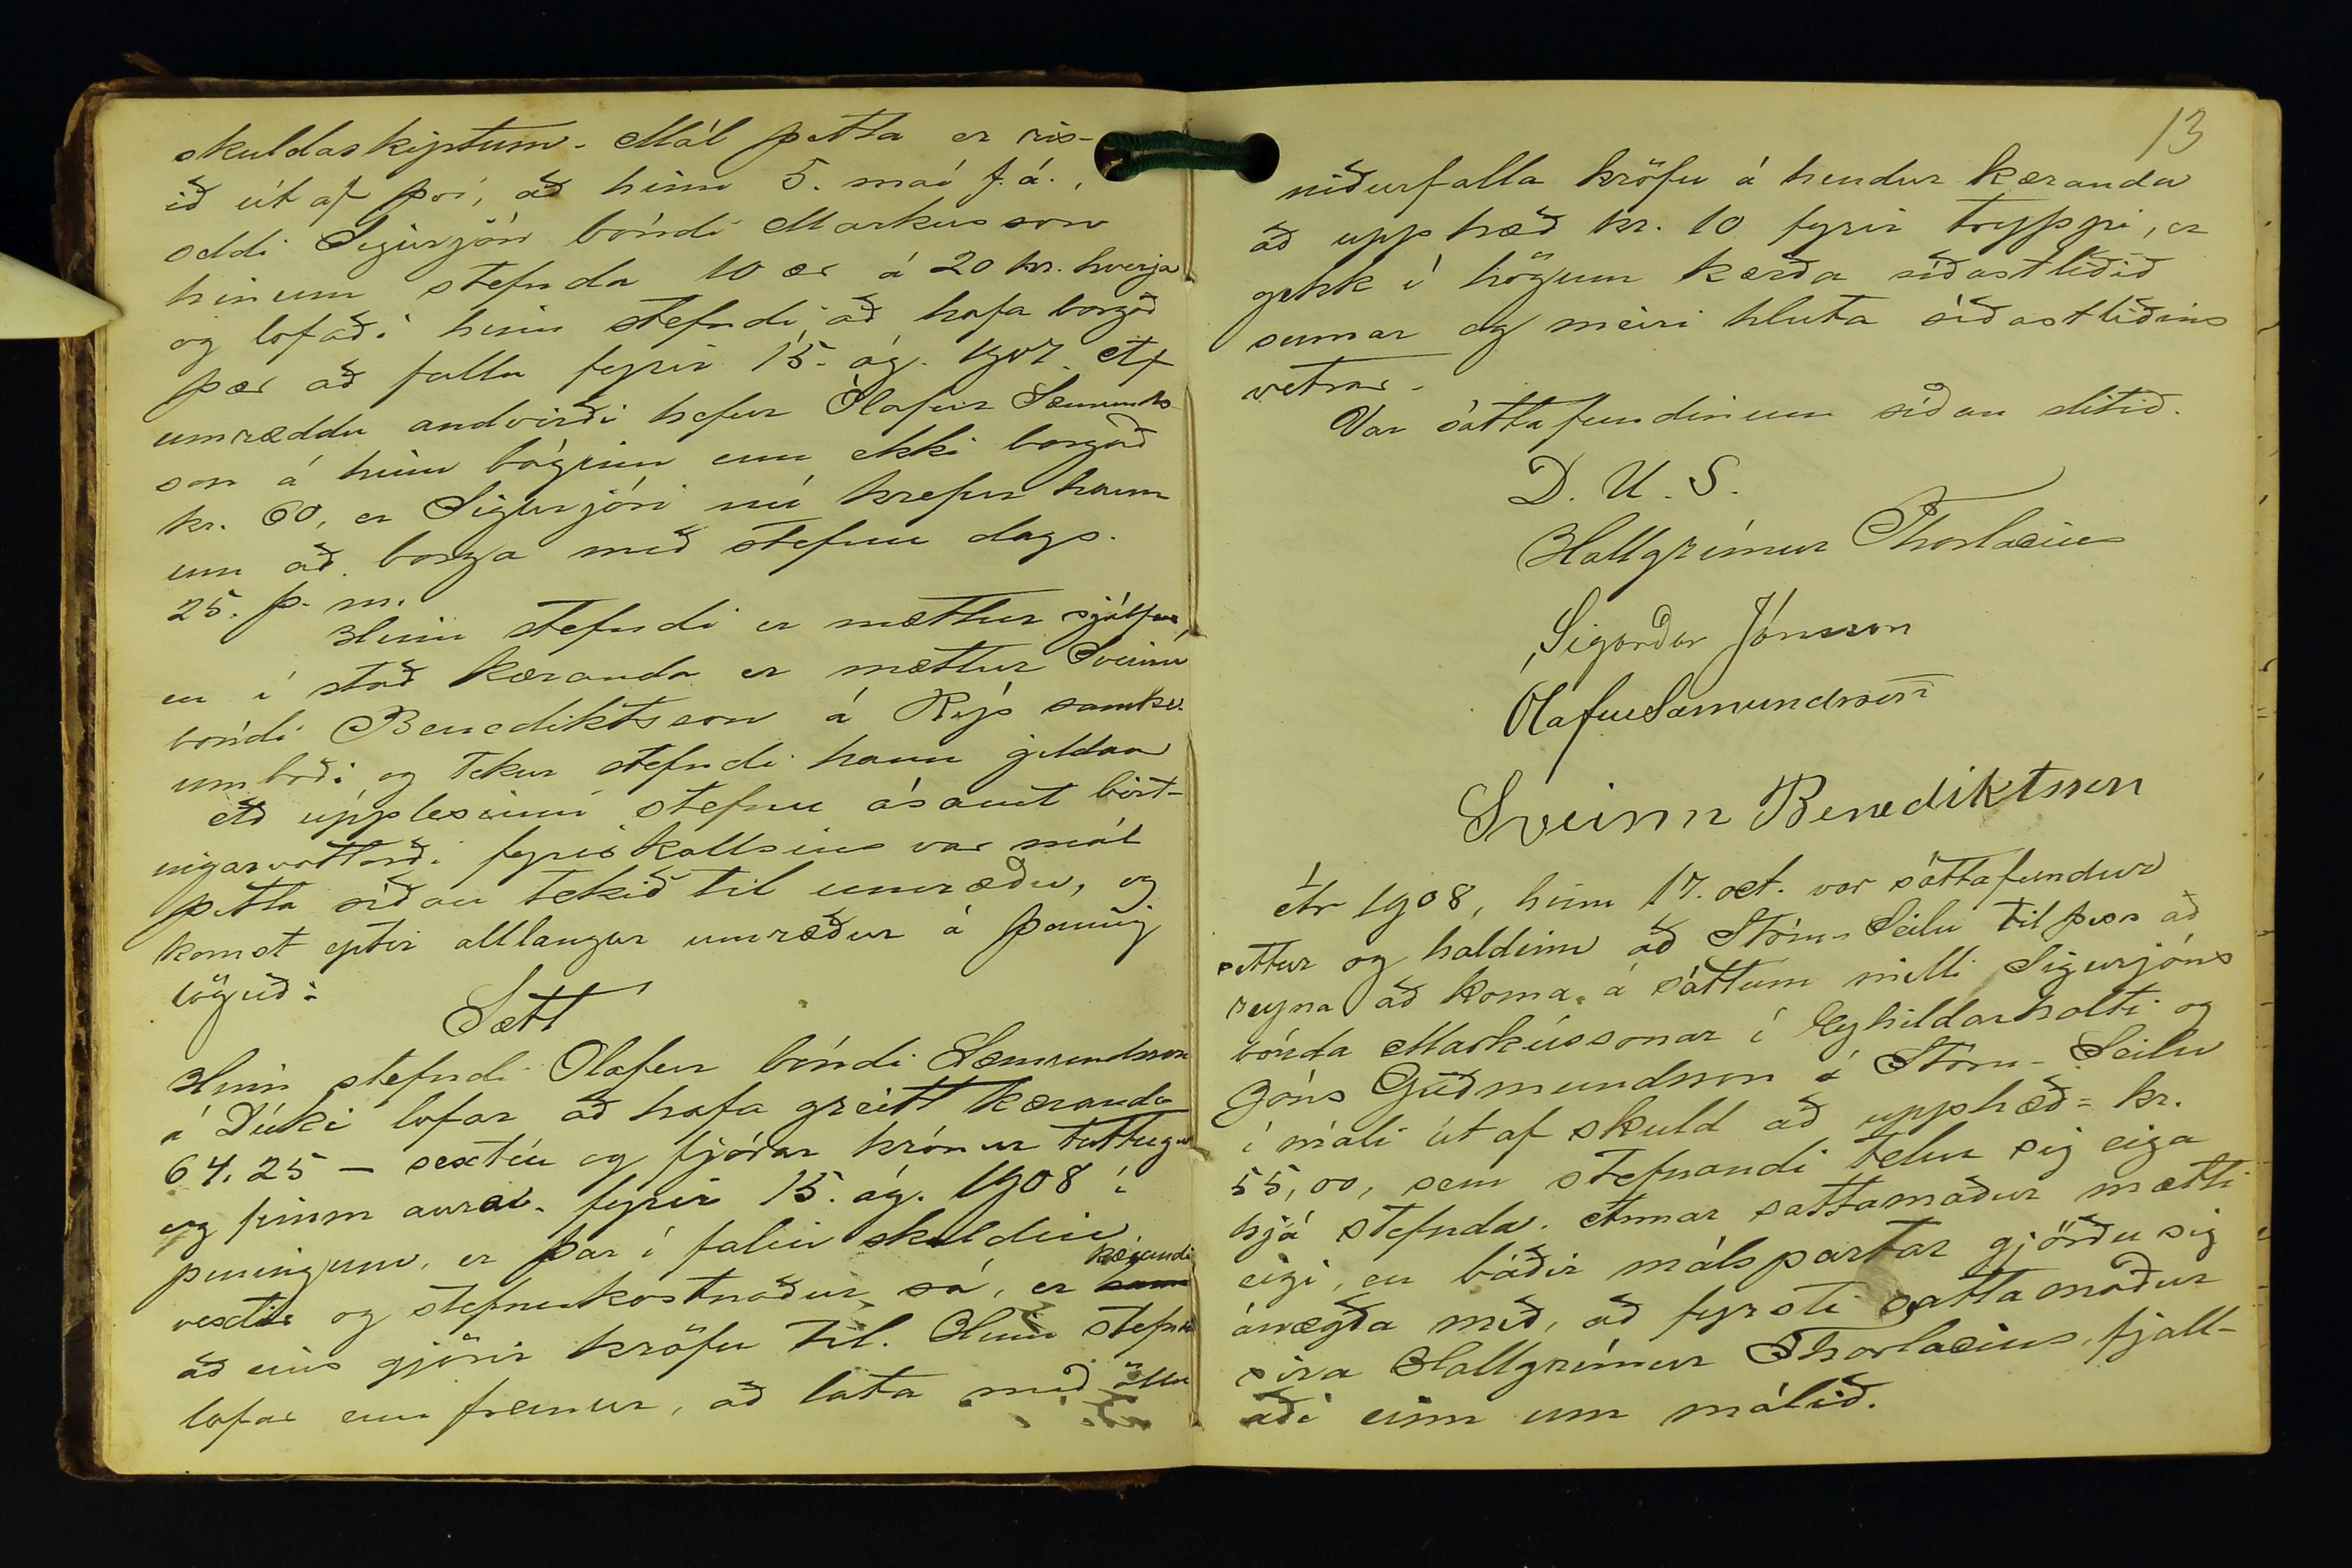 skuldaskiptum. Mál þetta er ris-
ið út af því, að hinn 5. maí f. á.,
seldi Sigurjón bóndi Markusson
hinum stefnda 10 ær á 20 kr. hverja
og lofaði hinn stefndi, að hafa borgað
þær að fullu fyrir 15. ág. 1907. Af
umræddu andvirði hefur Ólafur Sæmunds-
son á hinn bóginn enn ekki borgað
kr. 60, er Sigurjón nú krefur hann
um að borga með stefnu dags.
25. þ. m.
Hinn stefndi er mættur sjálfur,
en í stað kæranda er mættur Sveinn
bóndi Benediktsson á Ríp samkv.
umboði og tekur stefndi hann gildan
Að upplesinni stefnu ásamt birt-
ingarvottorði fyrirkallsins var mál
þetta síðan tekið til umræðu, og
komst eptir alllangar umræður á þannig
löguð:
Sætt
Hinn stefndi Ólafur bóndi Sæmundsson
á Dúki lofar að hafa greitt kæranda
64.25 — sextíu og fjórar krónur tuttugu
og fimm aura. fyrir 15. ág. 1908 í
peningum, er þar í falin skuldin,
vextir og stefnukostnaður sá, er kærandi
að eins gjörir kröfu til. Hinn stefndi
lofar enn fremur, að láta með öllu
13
niðurfalla kröfu á hendur kæranda
að upphæð kr. 10 fyrir tryppi, er
gekk í högum kærða síðastliðið
sumar og meiri hluta síðastliðins
vetrar.
Var sáttafundinum síðan slitið.
D. U. S.
Hallgrímur Thorlacius
Sigurður Jónsson
Ólafur Sæmundsson
Sveinn Benediktsson
Ár 1908, hinn 17. oct. var sáttafundur
settur og haldinn að Stóru-Seilu til þess að
reyna að koma á sáttum milli Sigurjóns
bónda Markússonar í Eyhildarholti og
Jóns Guðmundsson á Stóru-Seilu
í máli út af skuld að upphæð = kr.
55,00, sem stefnandi telur sig eiga
hjá stefnda. Annar sattamaður mætti
eigi, en báðir málspartar gjörðu sig
ánægða með, að fyrsti sattamaður
síra Hallgrímur Thorlacius, fjall-
aði einn um málið.